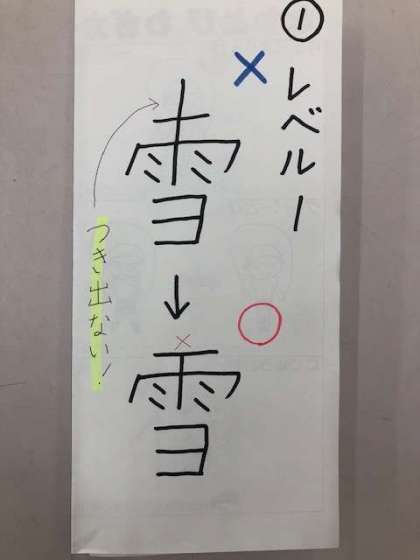 ① レベル1
×
雪
つき出ない！
↓
○
×
雪